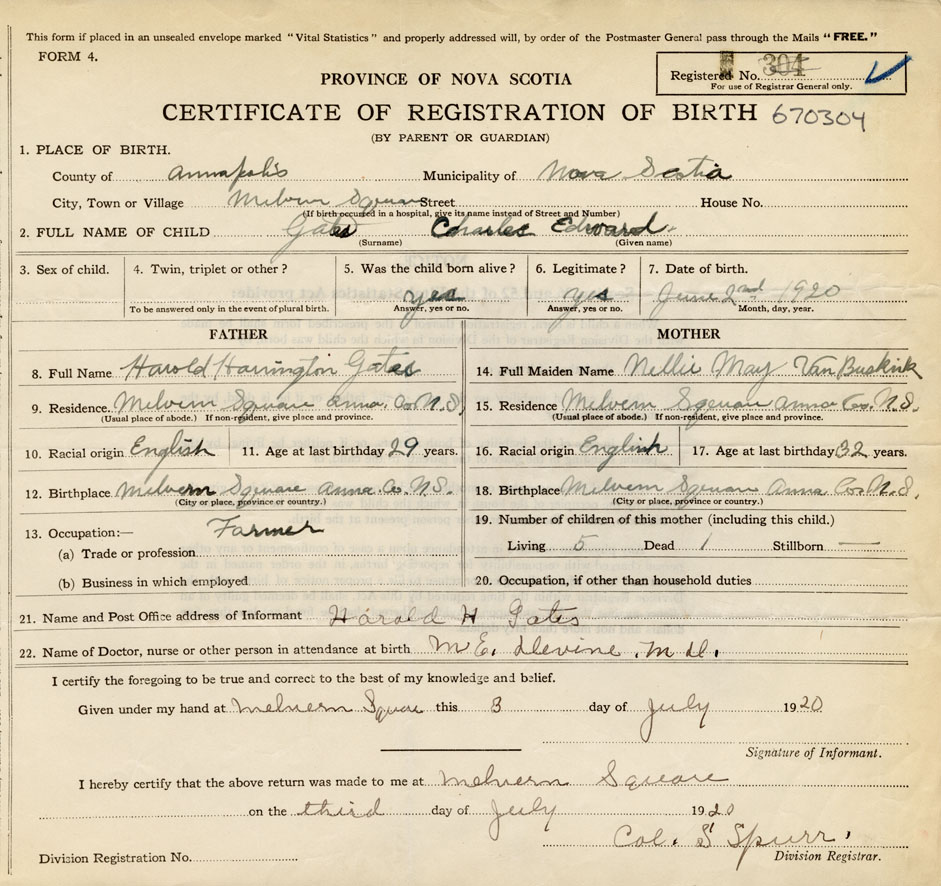 This form if placed in an unsealed envelope marked "Vital Statistics" and properly addressed will, by order of the Postmaster General pass through the Mails "FREE."
FORM 4.
Registered No. 304
For use of Registrar General only.
PROVINCE OF NOVA SCOTIA
CERTIFICATE OF REGISTRATION OF BIRTH 670304
(BY PARENT OR GUARDIAN)
1. PLACE OF BIRTH.
County of Annapolis Municipality of Nova Scotia
City, Town or Village Melvern Square Street House No.
(If birth occurred in a hospital, give its name instead of Street and Number)
2. FULL NAME OF CHILD Gates Charles Edward
(Surname) (Given name)
3. Sex of child. 4. Twin, triplet or other? 5. Was the child born alive? 6. Legitimate? 7. Date of birth.
yes yes June 2nd 1920
To be answered only in the event of plural birth. Answer, yes or no. Answer, yes or no. Month, day, year.
FATHER MOTHER
8. Full Name Harold Harrington Gates 14. Full Maiden Name Nellie May Van Buskirk
9. Residence. Melvern Square Anna. Co. N.S. 15. Residence Melvern Square Anna Co. N.S.
(Usual place of abode.) If non-resident, give place and province. (Usual place of abode.) If non-resident, give place and province.
10. Racial origin English 11. Age at last birthday 29 years. 16. Racial origin English 17. Age at last birthday 32 years.
12. Birthplace Melvern Square Anna Co. N.S. 18. Birthplace Melvern Square Anna. Co. N.S.
(City or place, province or country.) (City or place, province or country.)
13. Occupation:— Farmer 19. Number of children of this mother (including this child.)
(a) Trade or profession Living 5 Dead 1 Stillborn —
(b) Business in which employed 20. Occupation, if other than household duties
21. Name and Post Office address of Informant Harold H Gates
22. Name of Doctor, nurse or other person in attendance at birth M E. Devine. M D.
I certify the foregoing to be true and correct to the best of my knowledge and belief.
Given under my hand at Melvern Square this 3 day of July 1920
Signature of Informant.
I hereby certify that the above return was made to me at Melvern Square
on the third day of July 1920
Col. S Spurr.
Division Registration No. Division Registrar.